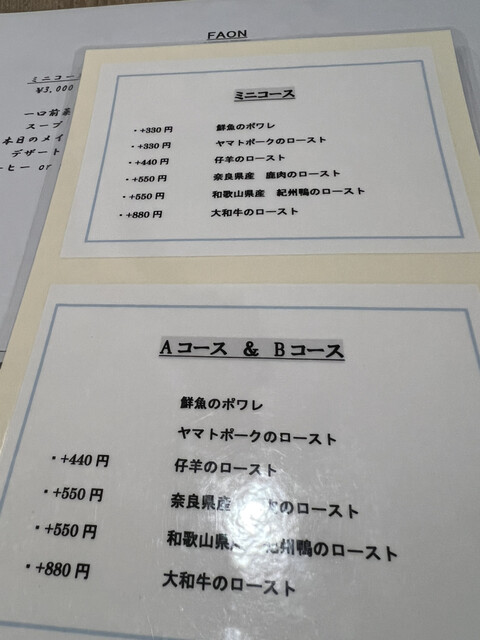 FAON
ミニコー
¥3,000
一口前菜
スープ
本日のメイ
デザート
ーヒー or
ミニコース
・+330 円 鮮魚のポワレ
・+330 円 ヤマトポークのロースト
・+440 円 仔羊のロースト
・+550 円 奈良県産 鹿肉のロースト
・+550 円 和歌山県産 紀州鴨のロースト
・+880 円 大和牛のロースト
Aコース & Bコース
鮮魚のポワレ
ヤマトポークのロースト
・+440 円 仔羊のロースト
・+550 円 奈良県産 肉のロースト
・+550 円 和歌山県産 紀州鴨のロースト
・+880 円 大和牛のロースト